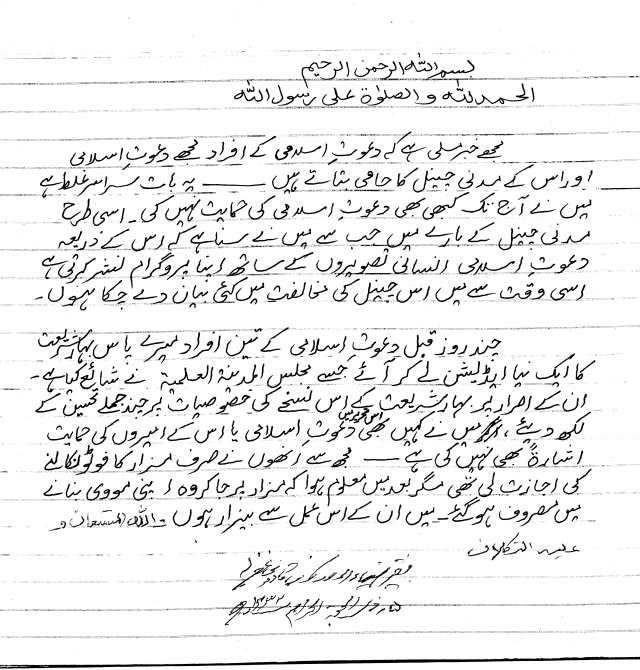 بسم اللہ الرحمن الرحیم
الحمد للہ والصلوٰۃ علی رسول اللہ
مجھے خبر ملی ہے کہ دعوتِ اسلامی کے افراد مجھے دعوتِ اسلامی
اور اس کے مدنی چینل کا حامی بتاتے ہیں ـــــ یہ بات سراسر غلط ہے
میں نے آج تک کبھی بھی دعوتِ اسلامی کی حمایت نہیں کی۔ اسی طرح
مدنی چینل کے بارے میں جب سے میں نے سنا ہے کہ اس کے ذریعہ
دعوتِ اسلامی انسانی تصویروں کے ساتھ اپنا پروگرام نشر کرتی ہے
اسی وقت سے میں اس چینل کی مخالفت میں کئی بیان دے چکا ہوں۔
چند روز قبل دعوتِ اسلامی کے تین افراد میرے پاس بہار شریعت
کا ایک نیا ایڈیشن لے کر آئے جسے مجلس المدینۃ العلمیۃ نے شائع کیا ہے۔
ان کے اصرار پر بہار شریعت کے اس نسخے کی خصوصیات پر چند جملے تحسین کے
لکھ دیئے، مگر میں نے کہیں بھی اس تحریر میں دعوتِ اسلامی یا اس کے امیروں کی حمایت
اشارۃً بھی نہیں کی ہے ـــــ مجھ سے انھوں نے صرف مزار کا فوٹو نکالنے
کی اجازت لی تھی مگر بعد میں معلوم ہوا کہ مزار پر جا کر وہ اپنی مووی بنانے
میں مصروف ہو گئے۔ میں ان کے اس عمل سے بیزار ہوں واللہ المستعان و
علیہ التکلان
فقیر ضیاء المصطفیٰ قادری غفرلہ
ذی الحجۃ الحرام ۱۴۳۲ھ